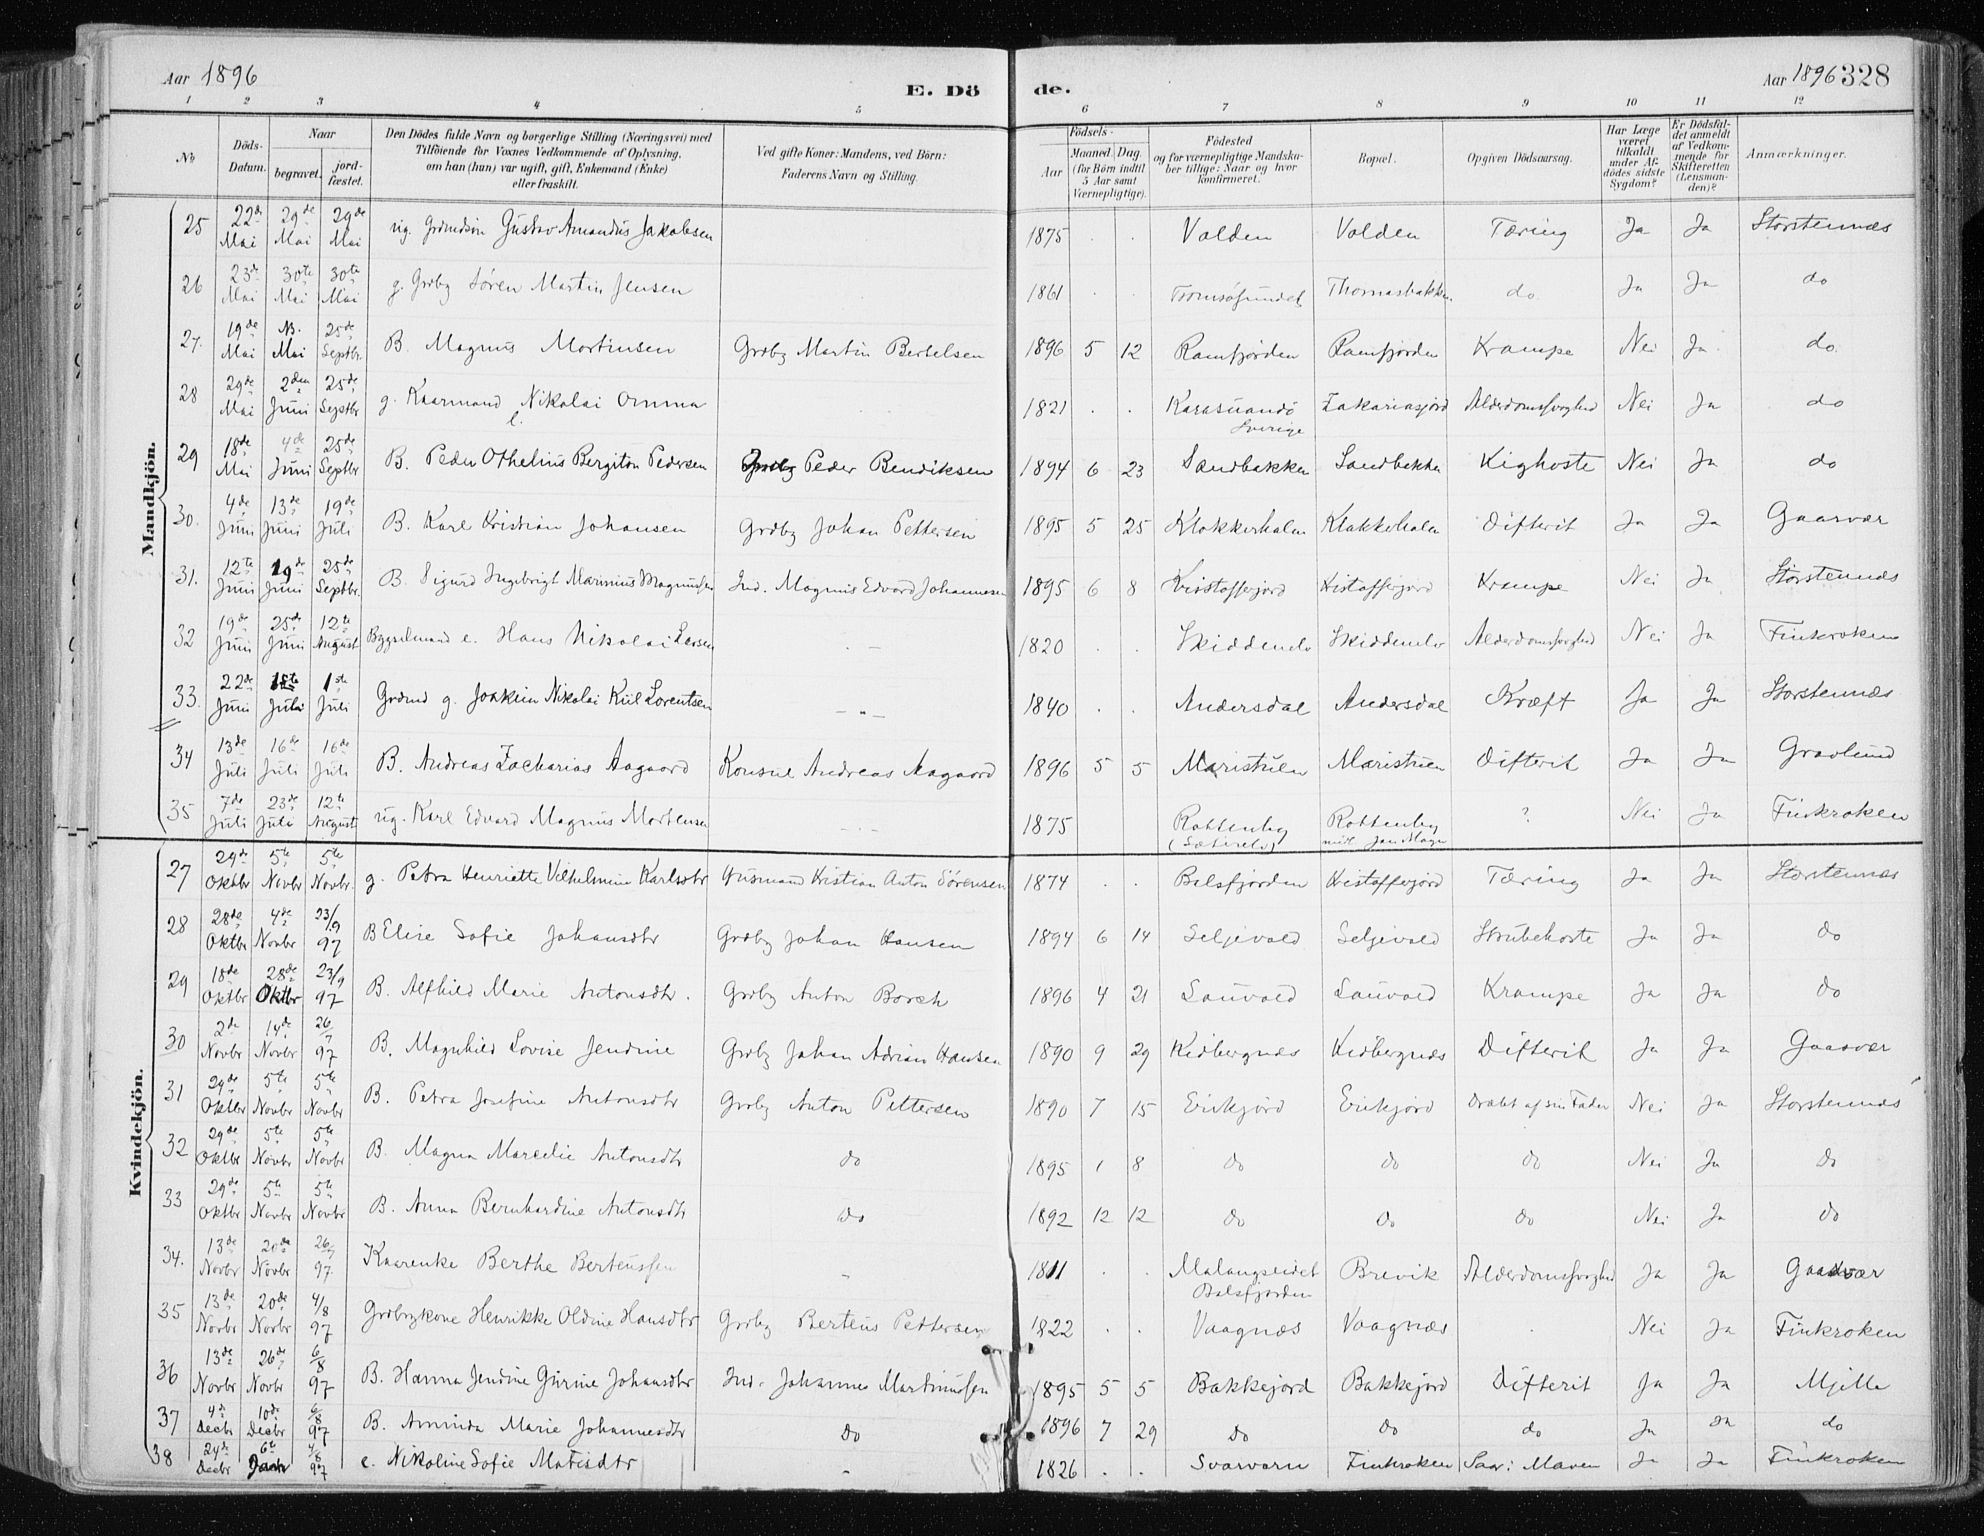 Aar 1896 E. Dö de. Aar 1896 328
1 2 3 4 5 6 7 8 9 10 11 12
No Döds-Datum. Naar begravet. jord-fæstet. Den Dödes fulde Navn og borgerlige Stilling (Næringsvei) med Tilföiende for Voxnes Vedkommende af Oplysning, om han (hun) var ugift, gift, Enkemand (Enke) eller fraskilt. Ved gifte Koner: Mandens, ved Börn: Faderens Navn og Stilling. Födsels- Aar Maaned. Dag. (for Börn indtil 5 Aar samt Værnepligtige). Födested og for værnepligtige Mandskaber tillige: Naar og hvor konfirmeret. Bopæl. Opgiven Dödsaarsag. Har Læge været tilkaldt under Afdödes sidste Sygdom? Er Dödsfaldet anmeldt af Vedkommende for Skifteretten (Lensmanden)? Anmærkninger.
Mandkjön.
25 22de Mai 29de Mai 29de Mai ug. Grdmdsön Gustav Amandus Jakobsen 1875 . . Valden Valden Tæring Ja Ja Storstennæs
26 23de Mai 30te Mai 30te Mai g. Grdbg Sören Martin Jensen 1861 . . Tromsösundet Thomasbakken do. Ja Ja do
27. 19de Mai Mai 25de Septbr. B. Magnus Mortinsen Grdbg Martin Bertelsen 1896 5 12 Ramfjorden Ramfjorden Krampe Nei Ja do.
28 29de Mai 2den Juni 25de Septbr g. Kaarmand Nikolai Omma 1821 . . Karasuando Sverige Zakariasjord Alderdomssvaghed Nei Ja do
29 18de Mai 4de Juni 25de Septbr B. Peder Othelius Bergiton Pedersen Grdbg Peder Bendiksen 1894 6 23 Sandbakken Sandbakken Kighoste Nei Ja do
30. 4de Juni 13de Juni 19de Juli B. Karl Kristian Johansen Grdbg Johan Pettersen 1895 5 25 Klokkerhalen Klokkerhalen Difterit Ja Ja Gaasvær
31. 12te Juni 19de Juni 25de Septbr. B. Sigurd Ingebrigt Marinius Magnussen Ind. Magnus Edvard Johannesen 1895 6 8 Kristofferjord Kistofferjord Krampe Nei Ja Storstennæs
32 19de Juni 25de Juni 12te August Bygselmand e. Hans Nikolai Larsen . - 1820 . . Skiddenelv Skiddenelv Alderdomssvaghed Nei Ja Finkroken
33. 22de Juni Juli 1ste Juli Grdmd g. Joakim Nikolai Kiil Lorentsen - . - 1840 . . Andersdal Andersdal Kræft Ja Ja Storstennæs
34 13de Juli 16de Juli 16de Juli B. Andreas Zacharias Aagaard Konsul Andreas Aagaard 1896 5 5 Maristuen Maristuen Difterit Ja Ja Gravlund
35 7de Juli 23de Juli 12te August ug. Karl Edvard Magnus Mortensen - . - 1875 Rottenbg (Sæterelv) Rottenbg ? Nei Ja Finkroken
Kvindekjön.
27 29de Oktbr 5te Novbr 5te Novbr. g. Petra Henriette Vilhelmine Karlsdtr Husmand Kristian Anton Sörensen 1874 . . Balsfjorden Kristofferjord Tæring Ja Ja Storstennæs
28 28de Oktbr 4de Novbr 23/9 97 B Elise Sofie Johansdtr Grdbg Johan Hansen 1894 6 14 Seljevold Seljevold Strubehoste Ja Ja do
29 18de Oktbr 28de Oktbr 23/9 97 B. Alfhild Marie Antonsdtr. Grdbg Anton Borch 1896 4 21 Lauvold Lauvold Krampe Ja Ja do
30 2de Novbr 14de Novbr 26/7 97 B. Magnhild Lovise Jendine Grdbg Johan Adrian Hansen 1890 9 29 Kidbergnæs Kidbergnæs Difterit Ja Ja Gaasvær
31 29de Oktbr 5te Novbr 5te Novbr B. Petra Josefine Antonsdtr Grdbg Anton Pettersen 1890 7 15 Erikjord Erikjord Dræbt af sin Fader Nei Ja Storstennæs
32 29de Oktbr 5te Novbr 5te Novbr B. Magna Marselie Antonsdtr do 1895 1 8 do do do Nei Ja do
33 29de Oktbr 5te Novbr 5te Novbr B. Anna Bernhardine Antonsdtr do 1892 12 12 do do do Nei Ja do
34. 13de Novbr 20de Novbr 26/7 97. Kaarenke Berthe Berteussen - 1811 . . Malangseidet Balsfjorden Brevik Alderdomssvaghed Ja Ja Gaasvær
35 13de Novbr 20de Novbr 4/8 97 Grdbrgkone Henrikke Oldine Hansdtr Grdbg Berteus Pettersen 1822 . . Vaagnæs Vaagnæs . Nei Ja Finkroken
36 13de Novbr 26de Novbr 6/8 97 B. Hanna Jendine Gurine Johansdtr Ind. Johannes Martinussen 1895 5 5 Bakkejord Bakkejord Difterit Ja Ja Mjelle
37 4de Decbr 10de Decbr 6/8 97 B. Aminda Marie Johannesdtr do 1896 7 29 do do do Ja Ja do
38 24de Decbr 6te Janr 4/8 97 e. Nikoline Sofie Matisdtr - 1826 . . Svarvarn Finkroken Saar i Maven Ja Ja Finkroken